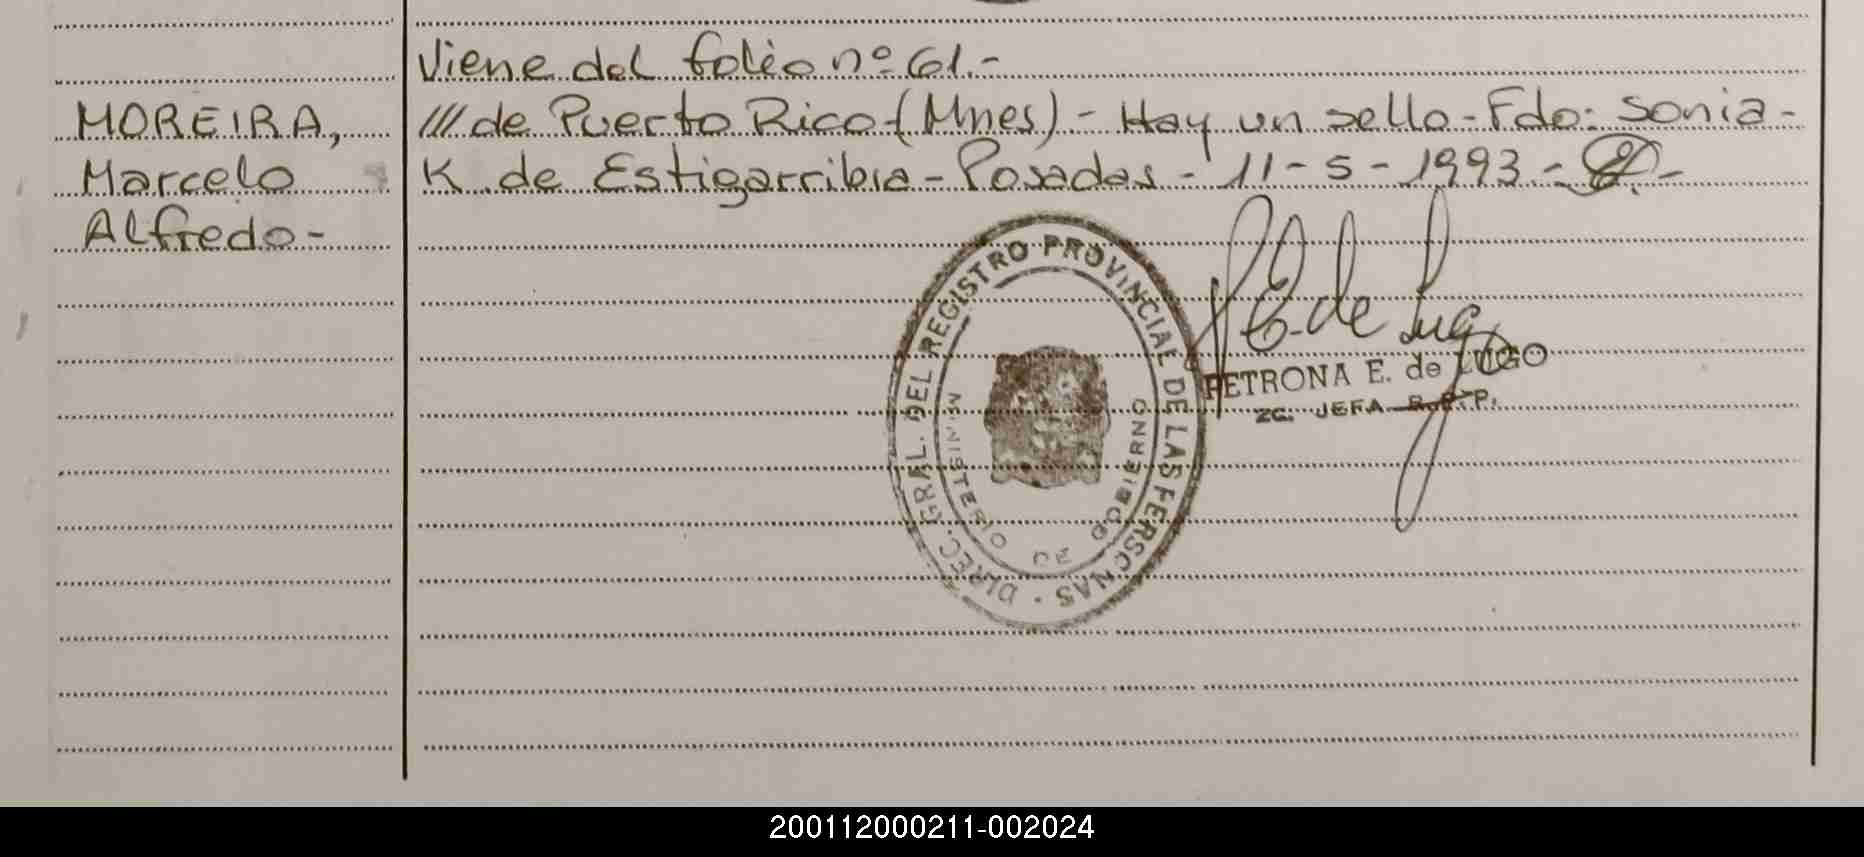 Viene del folio nº 61.-
MOREIRA,
Marcelo
Alfredo-
/// de Puerto Rico-(Mnes)- Hay un sello-Fdo: Sonia-
K. de Estigarribia-Posadas-11-5-1993-
DIREC. GRAL. DEL REGISTRO PROVINCIAL DE LAS PERSONAS
MINISTERIO DE GOBIERNO
P E. de Lugo
PETRONA E. de LUGO
JEFA
200112000211-002024